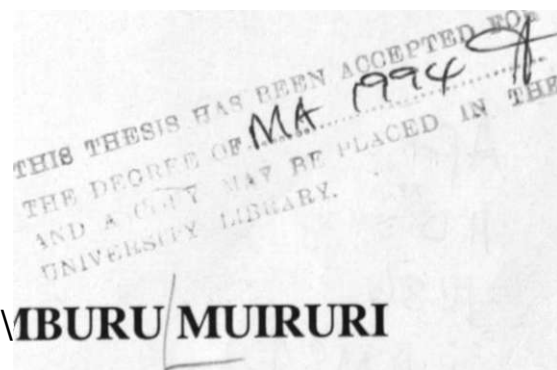 THIS THESIS HAS BEEN ACCEPTED FOR
THE DEGREE OF MA 1994
AND A COPY MAY BE PLACED IN THE
UNIVERSITY LIBRARY.
MBURU MUIRURI